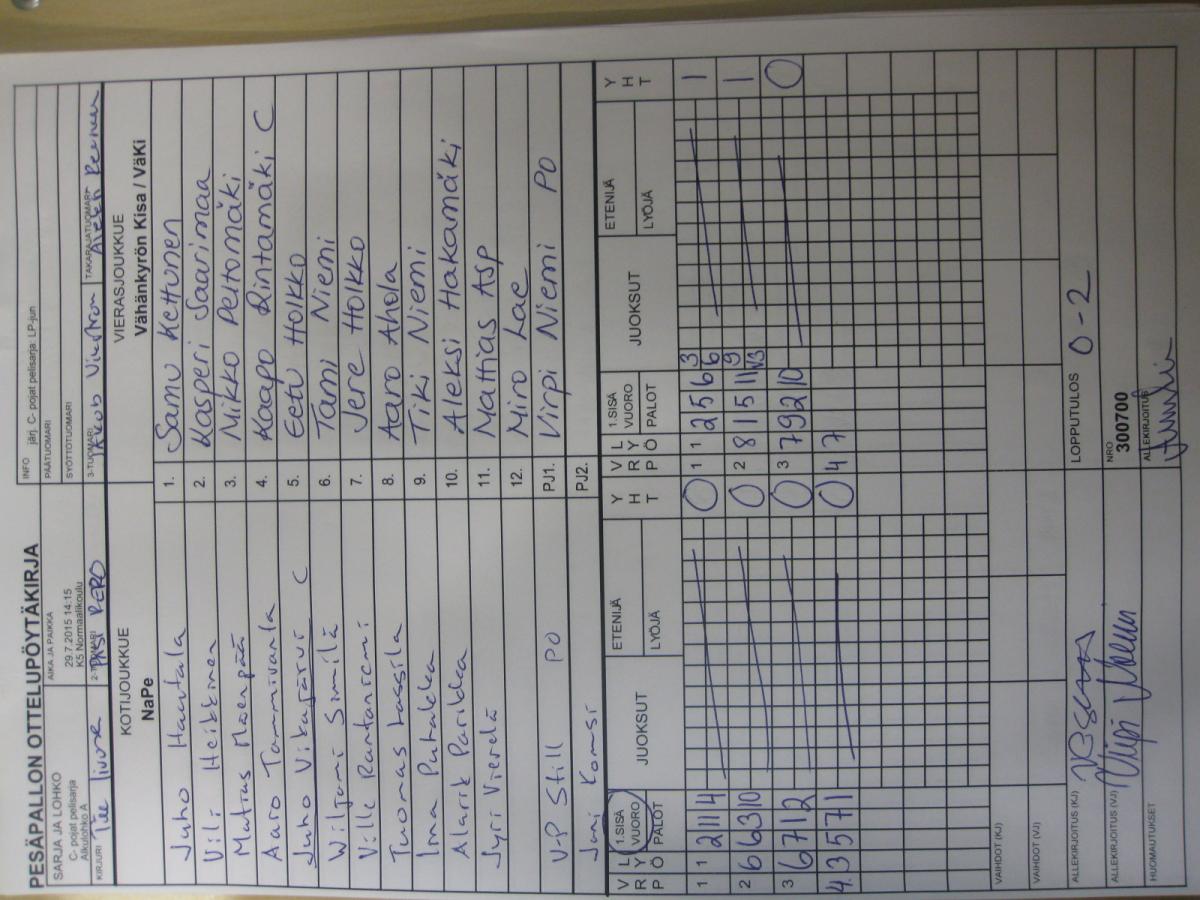 PESÄPALLON OTTELUPÖYTÄKIRJA
SARJA JA LOHKO
C- pojat pelisarja
Alkulohko A
AIKA JA PAIKKA
29.7.2015 14:15
K5 Normaalikoulu
INFO järj. C- pojat pelisarja: LP-jun
PÄÄTUOMARI
SYÖTTÖTUOMARI
KIRJURI
2-TUOMARI
3-TUOMARI Jakob
TAKARAJATUOMARI
KOTIJOUKKUE
NaPe
VIERASJOUKKUE
Vähänkyrön Kisa / VäKi
Juho Hautala 1. Samu Kettunen
Vili Heikkinen 2. Kasperi Saarimaa
Matias Mäenpää 3. Mikko Peltomäki
Aaro Tammivarla 4. Kaapo Rintamäki C
Juho Vikajärvi C 5. Eetu Holkko
Wiljami Similä 6. Tami Niemi
Ville Rantaniemi 7. Jere Holkko
Tuomas Lassila 8. Aaro Ahola
Ima Puhakka 9. Tiki Niemi
Alarik Parikka 10. Aleksi Hakamäki
Jyri Vierelä 11. Mattias Asp
12. Miro Lae
V-P Still PO PJ1. Virpi Niemi PO
Jani Komsi PJ2.
V R P L Y Ö 1.SISÄ VUORO PALOT JUOKSUT ETENIJÄ LYÖJÄ Y H T V R P L Y Ö 1.SISÄ VUORO PALOT JUOKSUT ETENIJÄ LYÖJÄ Y H T
1 1 2 11 4 0 1 1 2 5 6 3 6 1
2 6 6 3 10 0 2 8 1 5 11 9 V3 1
3 6 7 12 0 3 7 9 2 10 0
4. 3 5 7 1 0 4 7
VAIHDOT (KJ)
VAIHDOT (VJ)
ALLEKIRJOITUS (KJ)
LOPPUTULOS 0-2
ALLEKIRJOITUS (VJ) Virpi Niemi
NRO
300700
HUOMAUTUKSET
ALLEKIRJOITUS